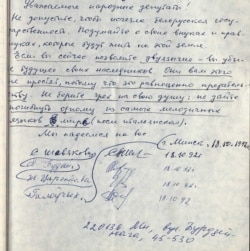 Уважаемые народные депутаты!
Не допустите, чтобы исчезла белорусская госу-
дарственность. Подумайте о своих внуках и прав-
нуках, которые будут жить на этой земле.
Если вы сейчас позволите двуязычие - вы убье-
те будущее своих последователей. Они вам этого
не простят, потому что это равноценно предатель-
ству. Не берите грех на свою душу: не дайте
погибнуть одному из самых мелодичных
языков мира (после итальянского).
Мы надеемся на вас
г. Минск, 18.10.92г.
С уважением
18.10.92г.
18.10.92
220136, Мн, вул.
45-530